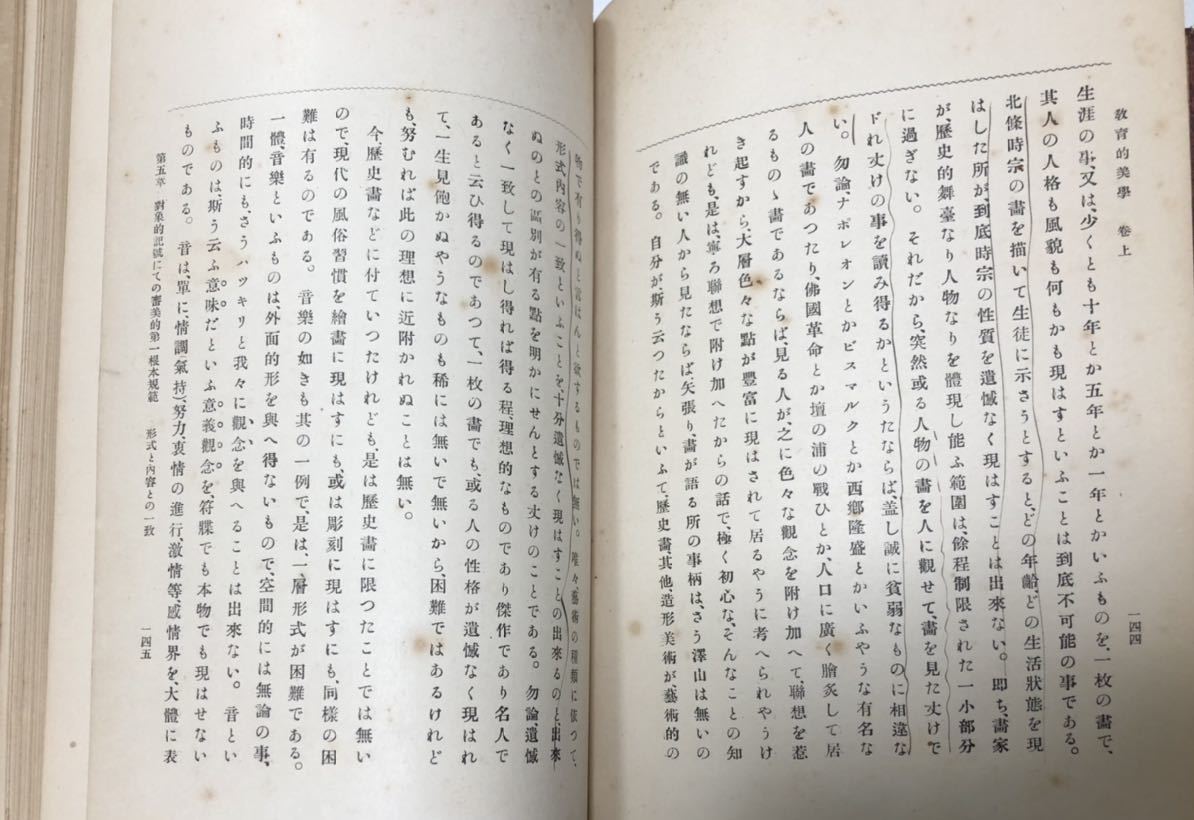 教育的美學　卷上
一四四
生涯の事、又は、少くとも十年とか五年とか一年とかいふものを、一枚の畫で、
其人の人格も風貌も何もかも現はすといふことは到底不可能の事である。
北條時宗の畫を描いて生徒に示さうとすると、どの年齡、どの生活狀態を現
はした所が、到底時宗の性質を遺憾なく現はすことは出來ない。卽ち畫家
が、歷史的舞臺なり人物なりを體現し能ふ範圍は、餘程制限された一小部分
に過ぎない。それだから、突然或る人物の畫を人に觀せて、畫を見た丈けで
どれ丈けの事を讀み得るかといふたならば、蓋し誠に貧弱なものに相違な
い。勿論、ナポレオンとかビスマルクとか西鄕隆盛とかいふやうな有名な
人の畫であつたり、佛國革命とか壇の浦の戰ひとか、人口に廣く膾炙して居
るものゝ畫であるならば、見る人が、之に色々な觀念を附け加へて、聯想を惹
き起すから、大層色々な點が豐富に現はされて居るやうに考へられやうけ
れども、是は、寧ろ聯想で附け加へたからの話で、極く初心な、そんなことの知
識の無い人から見たならば、矢張り、畫が語る所の事柄は、さう澤山は無いの
である。自分が、斯う云つたからといふて、歷史畫、其他、造形美術が、藝術的の
物で有り得ぬと言はんと欲するものでは無い。唯々藝術の種類に依つて、
形式内容の一致といふことを、十分遺憾なく現はすことの出來るのと、出來
ぬのとの區別が有る點を明かにせんとする丈けのことである。勿論、遺憾
なく一致して現はし得れば得る程理想的なものであり傑作であり名人で
あると云ひ得るのであつて、一枚の畫でも、或る人の性格が遺憾なく現はれ
て、一生見飽かぬやうなものも稀には無いで無いから、困難ではあるけれど
も、努むれば此の理想に近附かれぬことは無い。
今、歷史畫などに付ていつたけれども、是は歷史畫に限つたことでは無い
ので、現代の風俗習慣を繪畫に現はすにも、或は彫刻に現はすにも、同樣の困
難は有るのである。音樂の如きも其の一例で、是は、一層形式が困難である。
一體、音樂といふものは外面的形を與へ得ないもので、空間的には無論の事、
時間的にも、さうハツキリと我々に觀念を與へることは出來ない。音とい
ふものは斯う云ふ意味だといふ意義觀念を、符牒でも本物でも現はせない
ものである。音は、單に、情調(氣持)、努力、衷情の進行、激情等、感情界を、大體に表
第五章　對象的記號にての審美的第一根本規範　形式と內容との一致
一四五